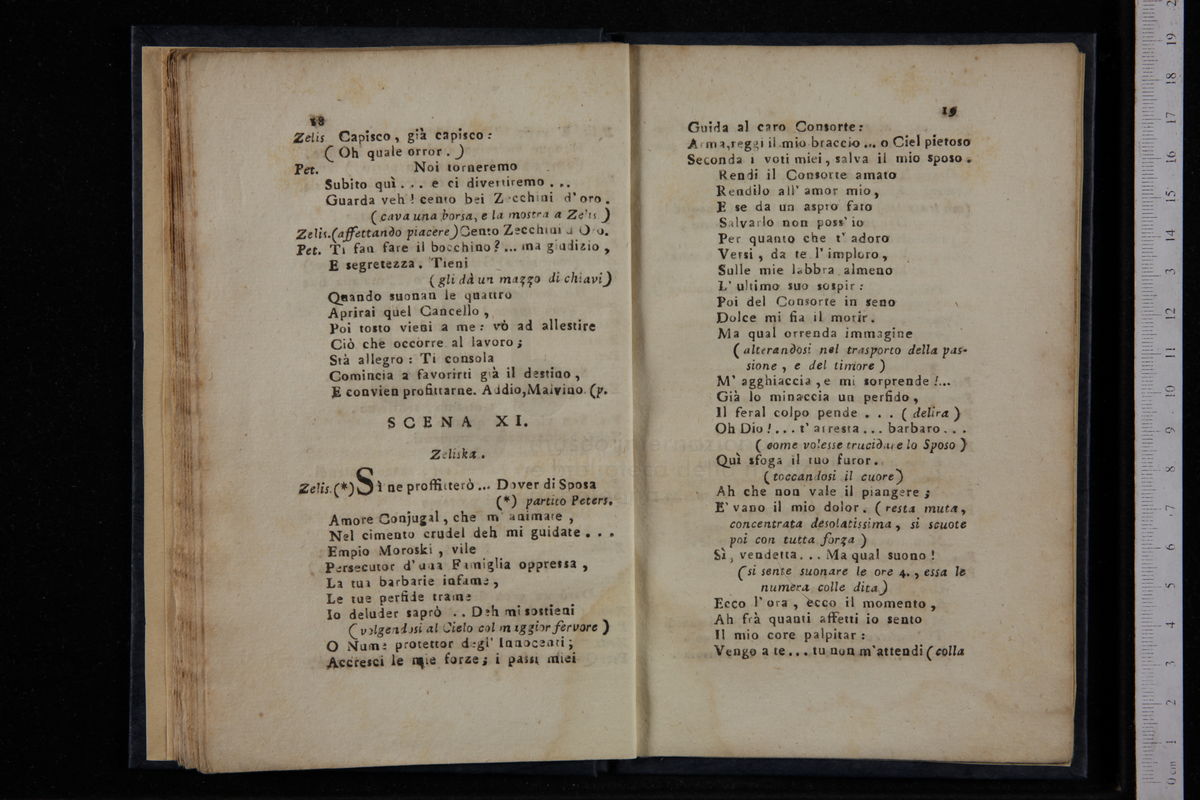 18
Zelis Capisco, già capisco:
( Oh quale orror. )
Pet. Noi torneremo
Subito quì . . . e ci divertiremo . . .
Guarda veh! cento bei Zecchini d'oro.
( cava una borsa, e la mostra a Zelis )
Zelis. (affettando piacere) Cento Zecchini d'Oro.
Pet. Ti fan fare il bocchino? ... ma giudizio,
E segretezza. Tieni
( gli dà un mazzo di chiavi )
Quando suonan le quattro
Aprirai quel Cancello,
Poi tosto vieni a me: vò ad allestire
Ciò che occorre al lavoro;
Stà allegro: Ti consola
Comincia a favorirti già il destino,
E convien profittarne. Addio, Malvino. (p.
SCENA XI.
Zeliska.
Zelis. (*) Sì ne proffitterò ... Dover di Sposa
(*) partito Peters.
Amore Conjugal, che m'animate,
Nel cimento crudel deh mi guidate . . .
Empio Moroski, vile
Persecutor d'una Famiglia oppressa,
La tua barbarie infame,
Le tue perfide trame
Io deluder saprò . . Deh mi sostieni
( volgendosi al Cielo col maggior fervore )
O Nume protettor degl' Innocenti;
Accresci le mie forze; i passi miei
19
Guida al caro Consorte:
Arma, reggi il mio braccio ... o Ciel pietoso
Seconda i voti miei, salva il mio sposo.
Rendi il Consorte amato
Rendilo all' amor mio,
E se da un aspro fato
Salvarlo non poss' io
Per quanto che t' adoro
Versi, da te l' imploro,
Sulle mie labbra almeno
L' ultimo suo sospir:
Poi del Consorte in seno
Dolce mi fia il morir.
Ma qual orrenda immagine
( alterandosi nel trasporto della pas-
sione, e del timore )
M' agghiaccia, e mi sorprende!...
Già lo minaccia un perfido,
Il feral colpo pende . . . ( delira )
Oh Dio! . . . t' arresta . . . barbaro . . .
( come volesse trucidare lo Sposo )
Quì sfoga il tuo furor.
( toccandosi il cuore )
Ah che non vale il piangere;
E' vano il mio dolor. ( resta muta,
concentrata desolatissima, si scuote
poi con tutta forza )
Sì, vendetta. . . Ma qual suono!
( si sente suonare le ore 4., essa le
numera colle dita )
Ecco l' ora, ecco il momento,
Ah frà quanti affetti io sento
Il mio core palpitar:
Vengo a te... tu non m'attendi ( colla